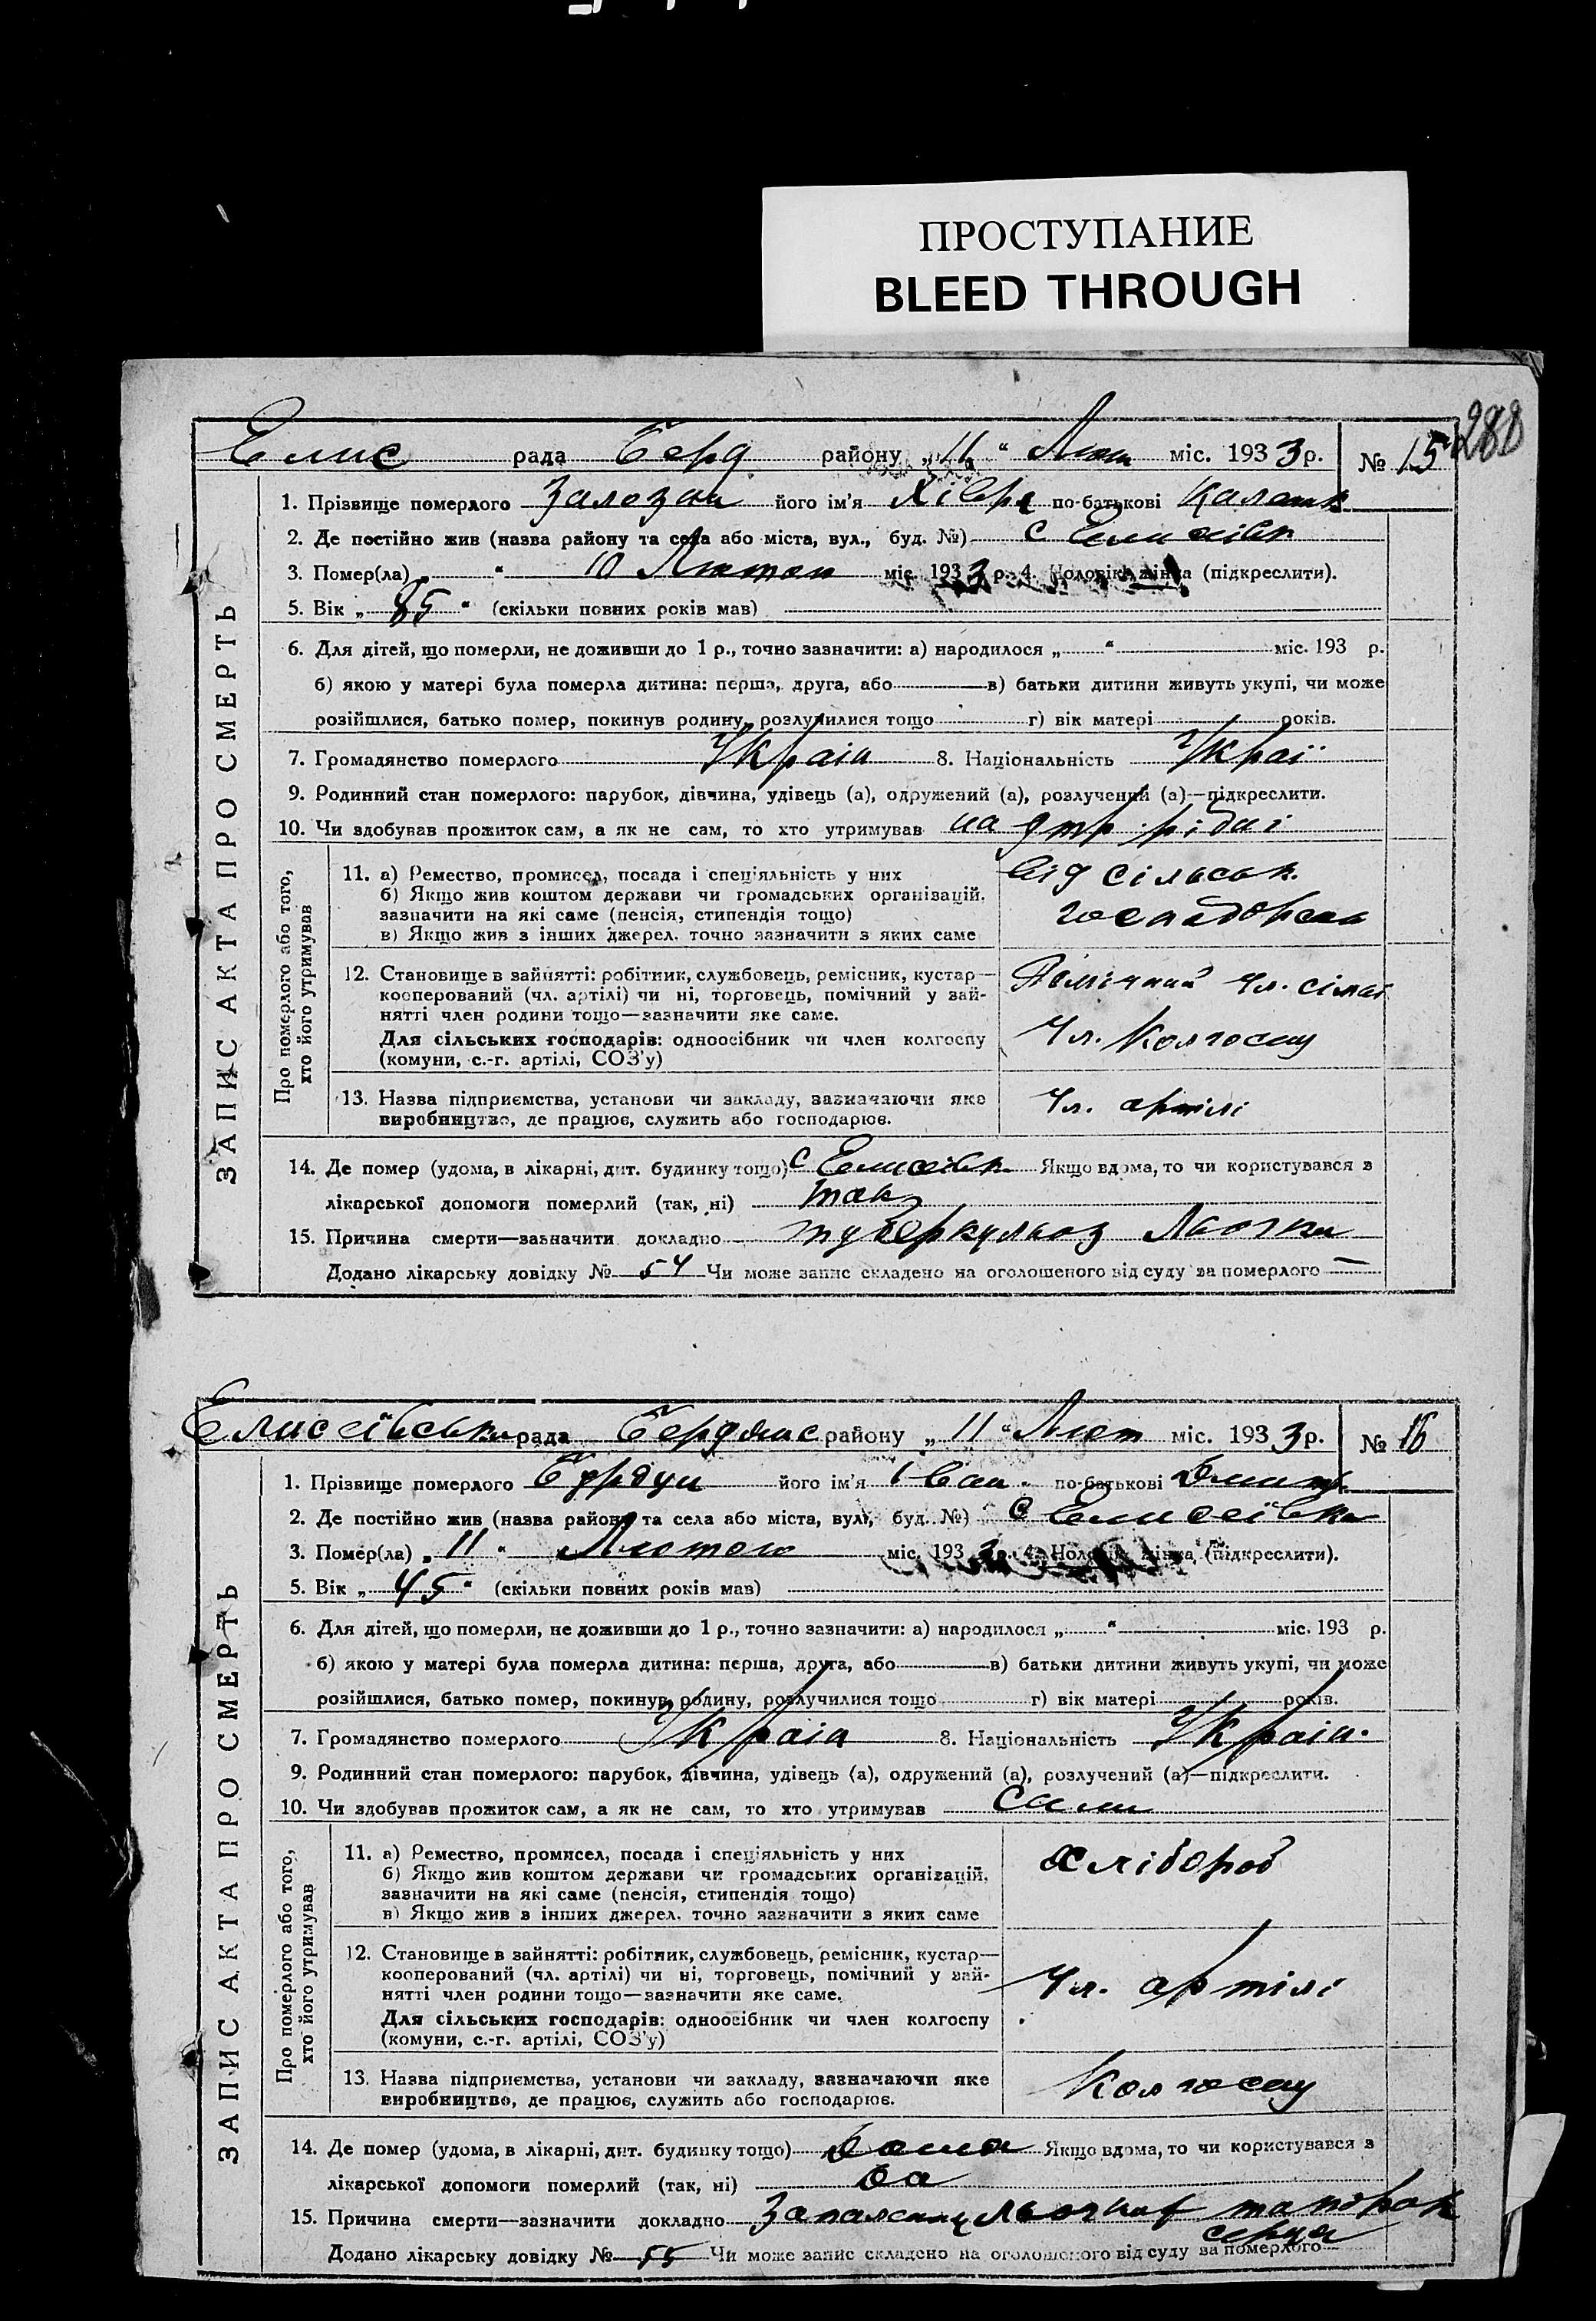 ПРОСТУПАНИЕ
BLEED THROUGH
288
Елис рада Берд району „11“ Лют міс. 1933 р. № 15
1. Прізвище померлого його ім'я по-батькові
2. Де постійно жив (назва району та села або міста, вул., буд. №) с Елисеівк
3. Помер(ла) „ “ 10 Лютого міс. 1933 р. 4. Чоловік, жінка (підкреслити).
5. Вік „85“ (скільки повних років мав)
6. Для дітей, що померли, не доживши до 1 р., точно зазначити: а) народилося „ “ міс. 193 р.
б) якою у матері була померла дитина: перша, друга, або в) батьки дитини живуть укупі, чи може
розійшлися, батько помер, покинув родину, розлучилися тощо г) вік матері років.
7. Громадянство померлого Украін 8. Національність Украї
9. Родинний стан померлого: парубок, дівчина, удівець (а), одружений (а), розлучений (а)—підкреслити.
10. Чи здобував прожиток сам, а як не сам, то хто утримував на утр. рідні
ЗАПИС АКТА ПРО СМЕРТЬ
Про померлого або того,
хто його утримував
11. а) Ремество, промисел, посада і спеціяльність у них
б) Якщо жив коштом держави чи громадських організацій,
зазначити на які саме (пенсія, стипендія тощо)
в) Якщо жив з інших джерел, точно зазначити з яких саме
від сільськ.
12. Становище в зайнятті: робітник, службовець, ремісник, кустар—
кооперований (чл. артілі) чи ні, торговець, помічний у зай-
нятті член родини тощо—зазначити яке саме.
Для сільських господарів: одноосібник чи член колгоспу
(комуни, с.-г. артілі, СОЗ'у)
Помічний чл. сімьі
Чл. Колгоспу
13. Назва підприємства, установи чи закладу, зазначаючи яке
виробництво, де працює, служить або господарює.
Чл. артілі
14. Де помер (удома, в лікарні, дит. будинку тощо) с Елисеівк Якщо вдома, то чи користувався з
лікарської допомоги померлий (так, ні) так
15. Причина смерти—зазначити докладно туберкульоз
Додано лікарську довідку № 54 Чи може запис складено на оголошеного від суду за померлого —
Елисеівська рада Бердянс району „11“ Лют міс. 1933 р. № 16
1. Прізвище померлого Бурдун його ім'я Іван по-батькові Дмитр.
2. Де постійно жив (назва району та села або міста, вул., буд. №) с Елисеївка
3. Помер(ла) „11“ Лютого міс. 1933 р. 4. Чоловік, жінка (підкреслити).
5. Вік „45“ (скільки повних років мав)
6. Для дітей, що померли, не доживши до 1 р., точно зазначити: а) народилося „ “ міс. 193 р.
б) якою у матері була померла дитина: перша, друга, або в) батьки дитини живуть укупі, чи може
розійшлися, батько помер, покинув родину, розлучилися тощо г) вік матері років.
7. Громадянство померлого Украін 8. Національність Украін.
9. Родинний стан померлого: парубок, дівчина, удівець (а), одружений (а), розлучений (а)—підкреслити.
10. Чи здобував прожиток сам, а як не сам, то хто утримував
ЗАПИС АКТА ПРО СМЕРТЬ
Про померлого або того,
хто його утримував
11. а) Ремество, промисел, посада і спеціяльність у них
б) Якщо жив коштом держави чи громадських організацій,
зазначити на які саме (пенсія, стипендія тощо)
в) Якщо жив з інших джерел, точно зазначити з яких саме
Хлібороб
12. Становище в зайнятті: робітник, службовець, ремісник, кустар—
кооперований (чл. артілі) чи ні, торговець, помічний у зай-
нятті член родини тощо—зазначити яке саме.
Для сільських господарів: одноосібник чи член колгоспу
(комуни, с.-г. артілі, СОЗ'у)
Чл. артілі
13. Назва підприємства, установи чи закладу, зазначаючи яке
виробництво, де працює, служить або господарює.
Колгоспу
14. Де помер (удома, в лікарні, дит. будинку тощо) Дома Якщо вдома, то чи користувався з
лікарської допомоги померлий (так, ні) Да
15. Причина смерти—зазначити докладно та порок
серця
Додано лікарську довідку № 55 Чи може запис складено на оголошеного від суду за померлого